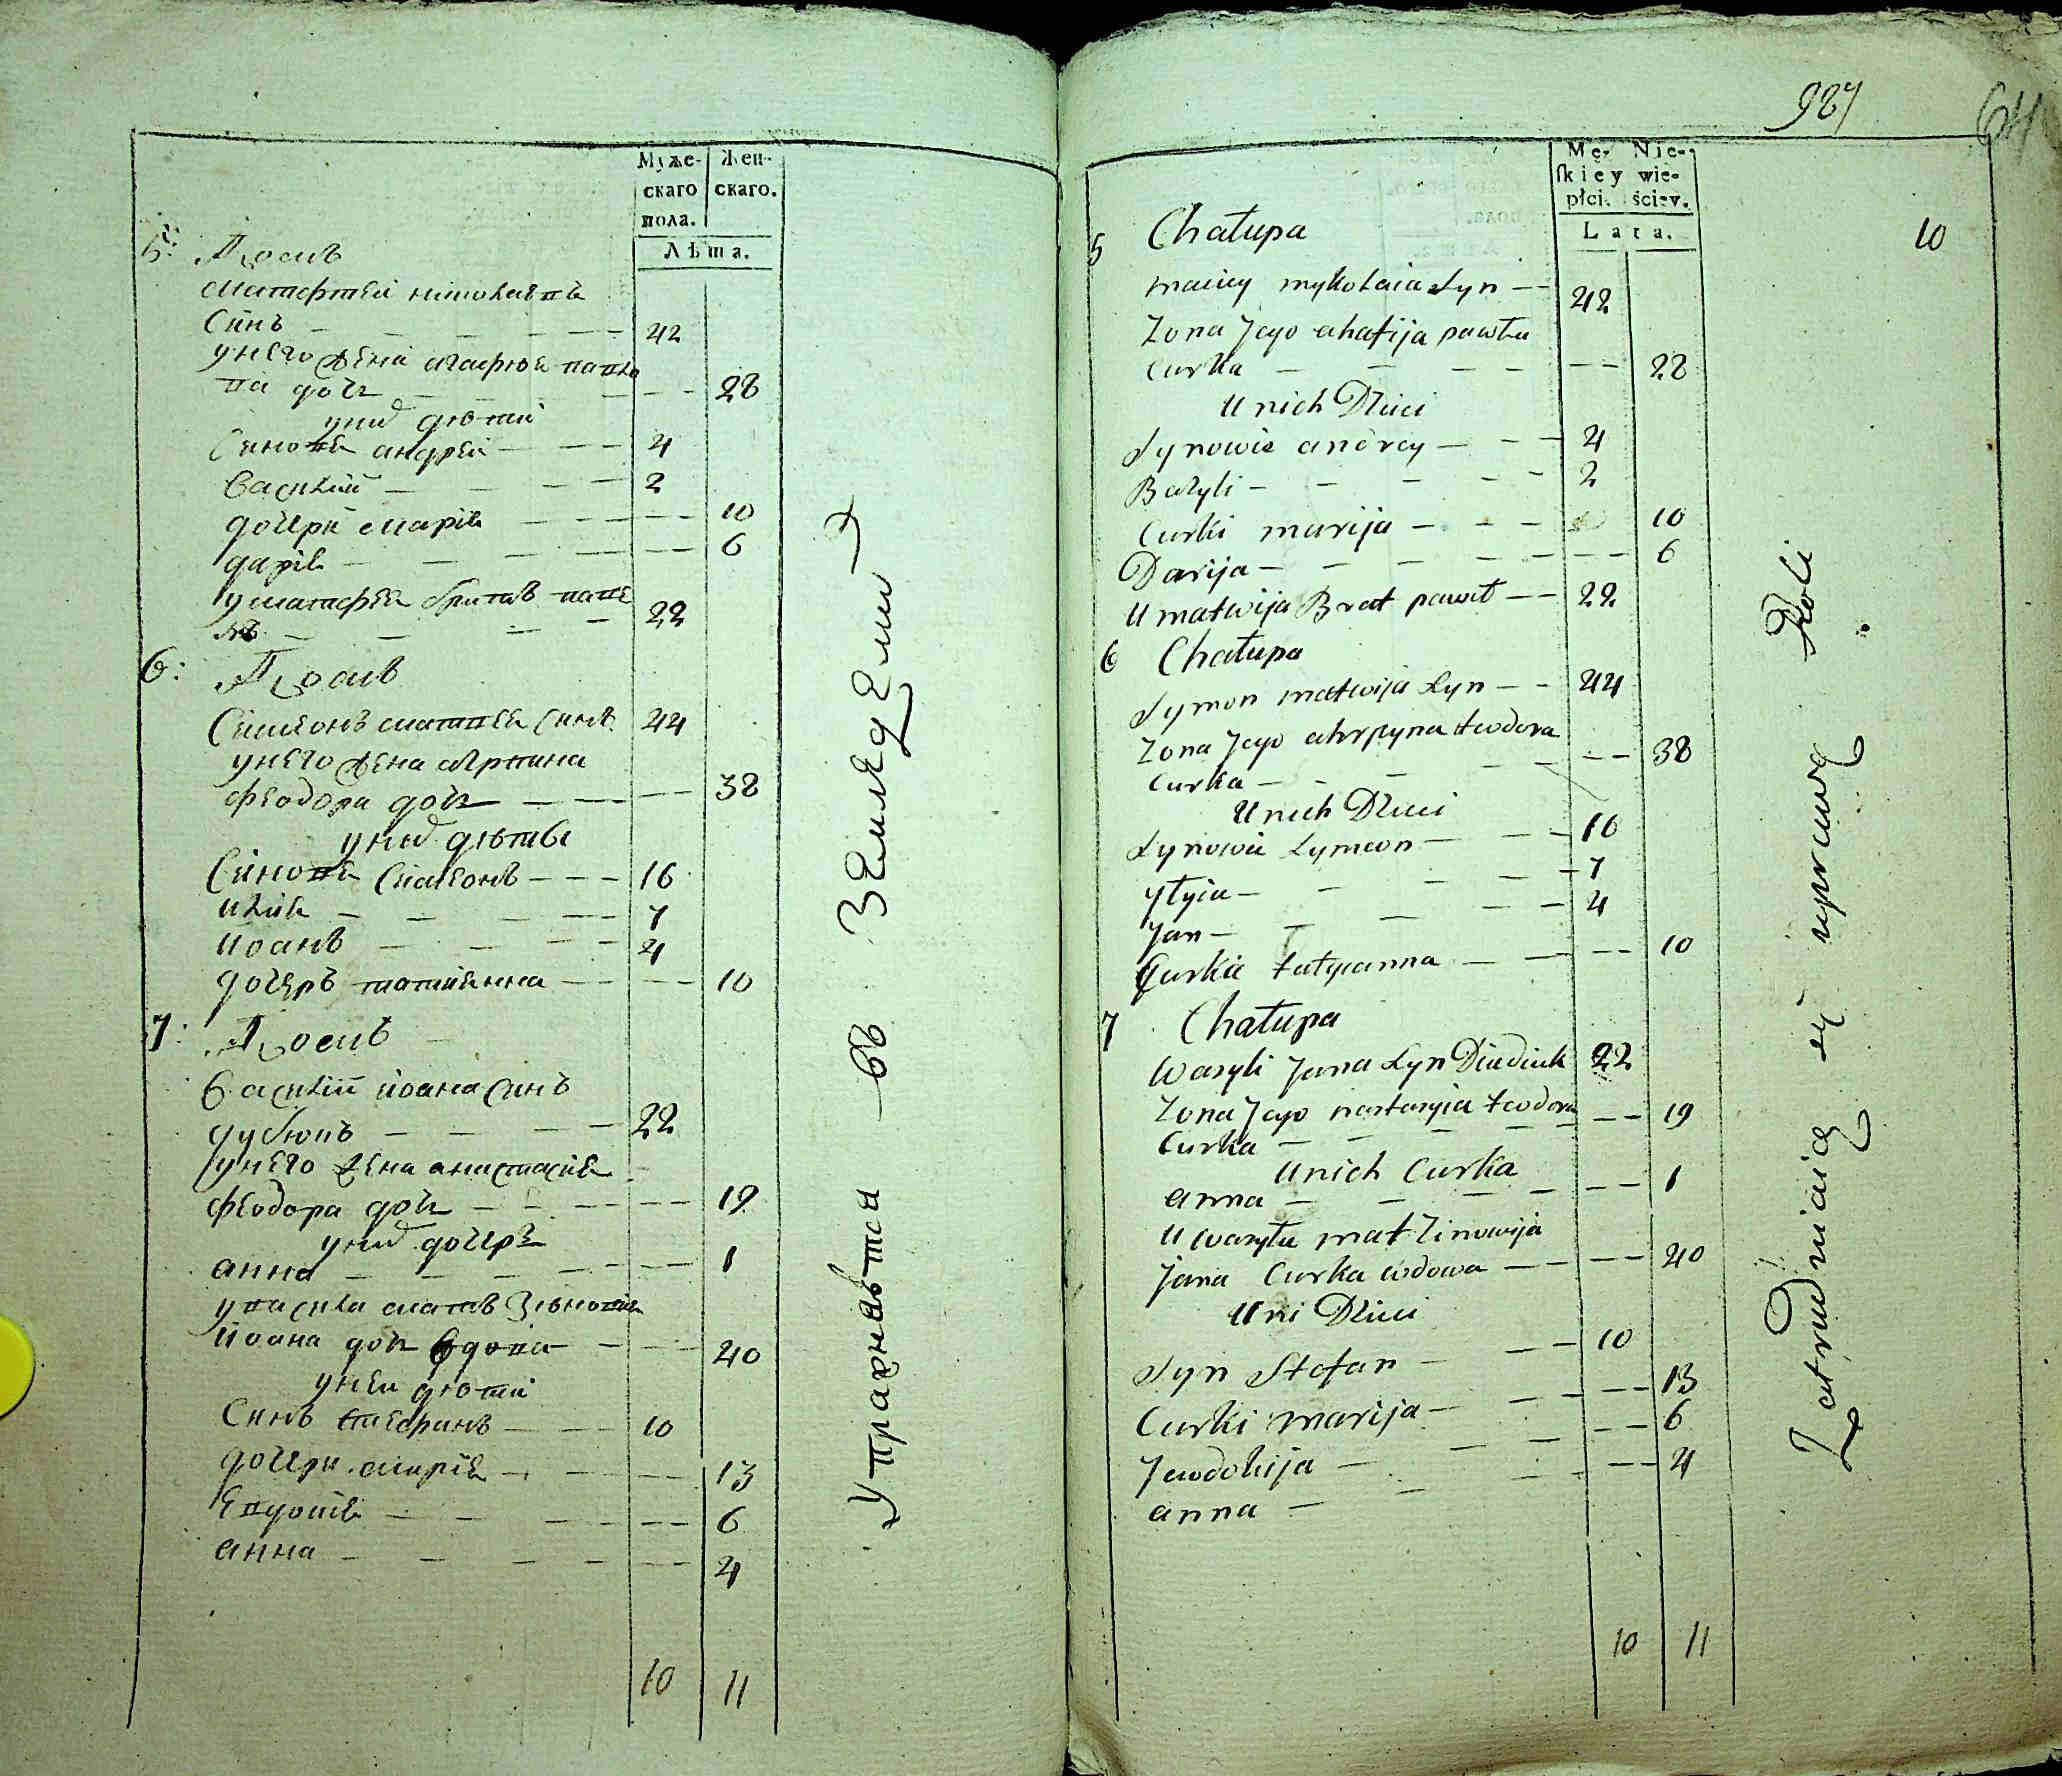 Муже- Жен-
скаго скаго.
пола.
Лѣта.
5:
Матфтей николаевъ
Синъ - - - 42
у него жена агафия павло
ва дочь - - - 28
у них дѣтий
Синове андрей - - - 4
Василий - - - 2
дочери мария - - - 10
дария - - - 6
у матфея братъ паве
лъ - - - 22
6:
Симеонъ матвея синъ 44
у него жена агрпина
феодора дочь - - - 38
у них дѣтвы
Синове Симеонъ - - - 16
илия - - - 7
иоанъ - - - 4
дочеръ татиянна - - - 10
7:
Василий иоана синъ
- - - 22
у него жена анастасия
феодора дочь - - - 19
у них дочерь
анна - - - 1
у василя мать Зѣновия
иоана дочь вдова - - - 40
у неи дѣтий
Синъ стефанъ - - - 10
дочери мария - - - 13
Евдокия - - - 6
анна - - - 4
10 11
Упражняется въ Земледелии
987 64
Mę- Nie-
ſkiey wie-
płci. ściey.
Lata.
10
5 Chałupa
maciey mykołaia Syn - - 42
Zona Jego ahafija pawła
Curka - - - 28
U nich Dzieci
Synowie andrey - - - 4
Bazyli - - - 2
Curki marija - - - 10
Darija - - - 6
U matwija Brat paweł - - 22
6 Chałupa
Symon matwija Syn - - 44
Zona Jego ahrpyna teodora
Curka - - - 38
U nich Dzieci
Synowie Symeon - - - 16
ylyia - - - 7
Jan - - - 4
Curka tatyianna - - - 10
7 Chałupa
Wasyli Jana Syn Diudiuk 22
Zona Jego nastasyia teodora - - 19
Curka - - -
U nich Curka
anna - - - 1
U wasyla mat Zinowija
Jana Curka wdowa - - - 40
U ni Dzieci
Syn Stefan - - - 10
Curki marija - - - 13
Jewdokija - - - 6
anna - - - 4
10 11
Zatrudniaią się uprawą Roli